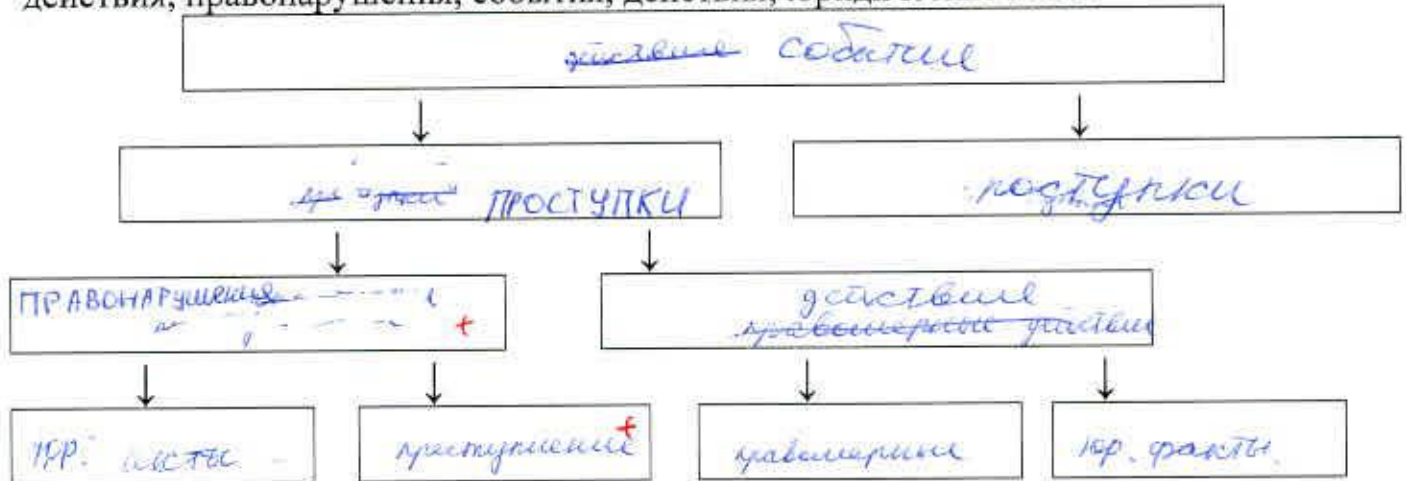 действия, правонарушения, события, действия,
действие событие
ПРОСТУПКИ
поступки
ПРАВОНАРушения
+
действие
правомерные действия
юр. акты
преступление +
правомерные
юр. факты.